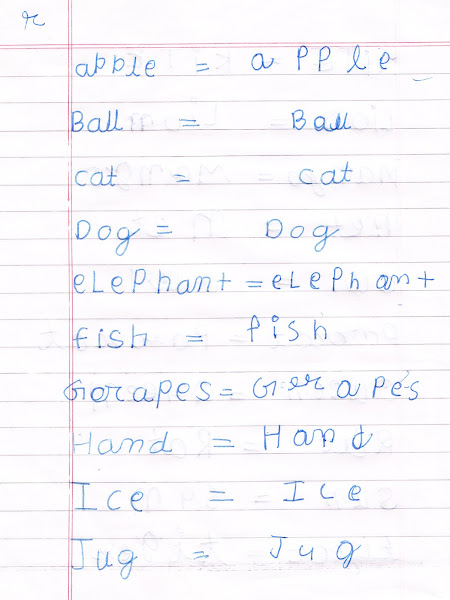 r
apple = a PP l e
Ball = Ball
cat = cat
Dog = Dog
eLePhant = eLePh ant
fish = fish
GraPes = Gr a Pes
Hand = Hand
Ice = Ice
Jug = Jug